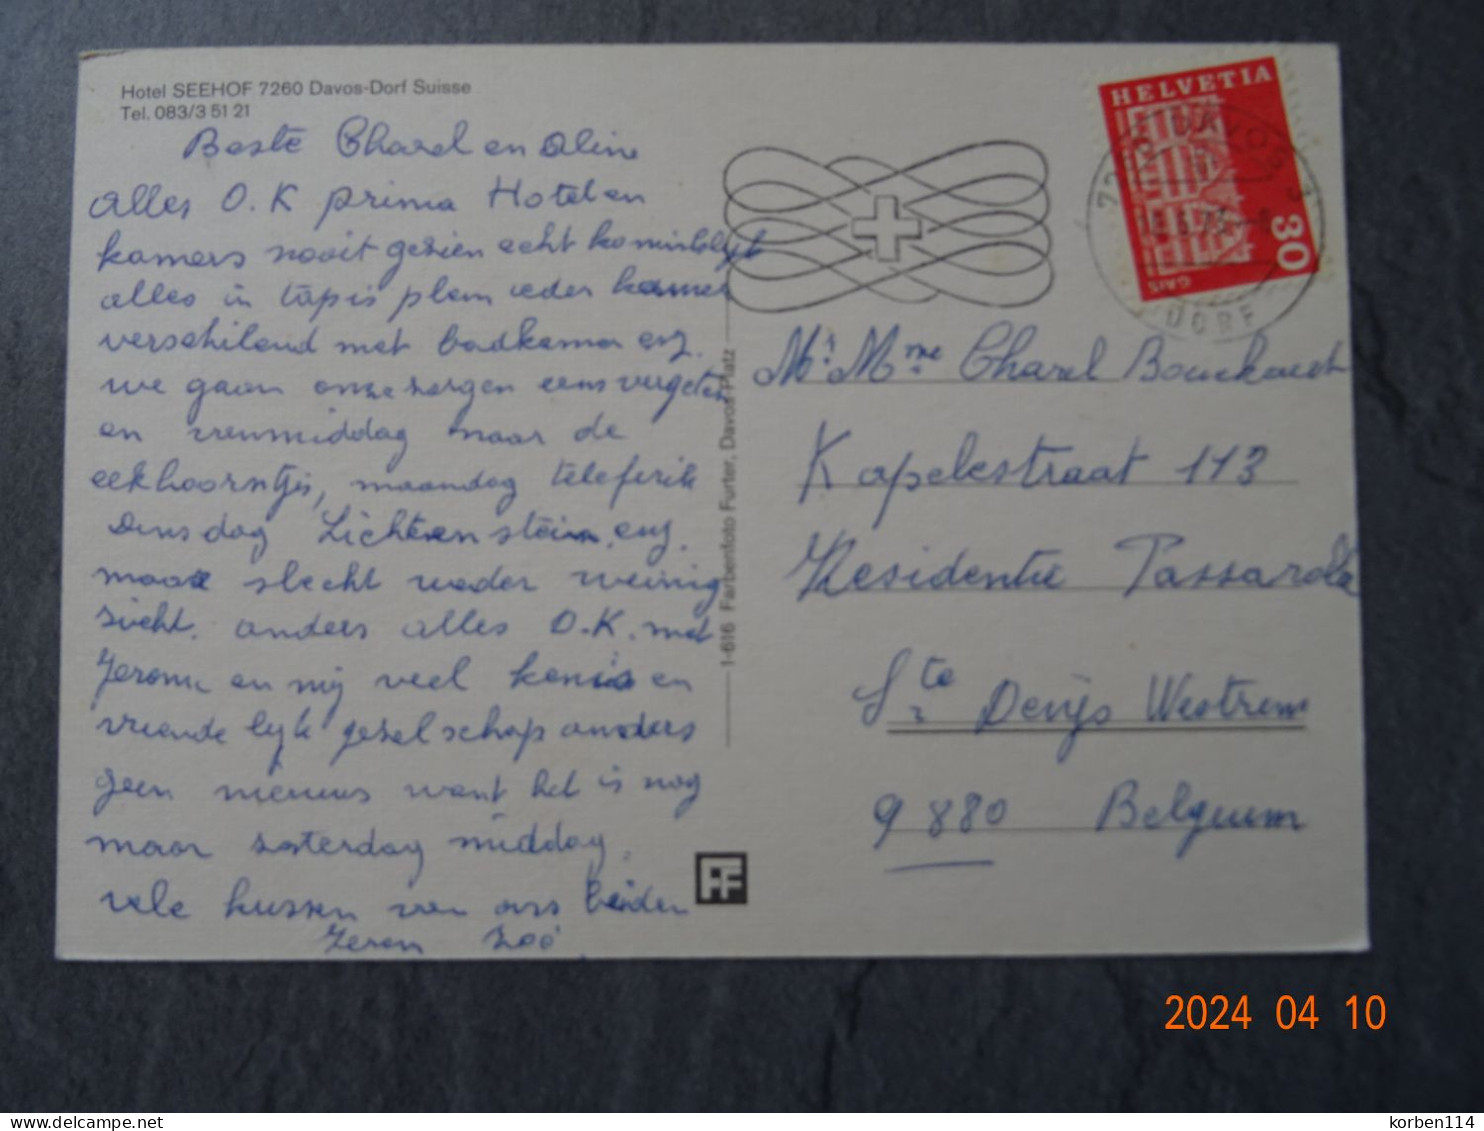 Hotel SEEHOF 7260 Davos-Dorf Suisse
Tel. 083/3 51 21
Beste Charel en Aline
alles O.K prima Hotel en
kamers nooit gezien echt
alles in tapis plein ieder kamer
verschilend met badkamer enz.
we gaan onze zorgen eens vergeten
en vrenmiddag naar de
eekhoorntjis, maandag teleferik
Dinsdag Lichtenstein, enz.
maar slecht weder weinig
zicht. anders alles O.K. met
Jerome en mij veel kenis en
vriendelyk gezelschap anders
geen nieuws want het is nog
maar zaterdag middag.
vele kussen van ons beiden
Jeron Zoé
1-616 Farbenfoto Furter, Davos-Platz
FF
HELVETIA
30
GAIS
DAVOS
DORF
Mr. Mme Charel
Kapelestraat 113
Residentie Passarella
Ste Denijs Westrem
9880 Belgium
2024 04 10
korben114